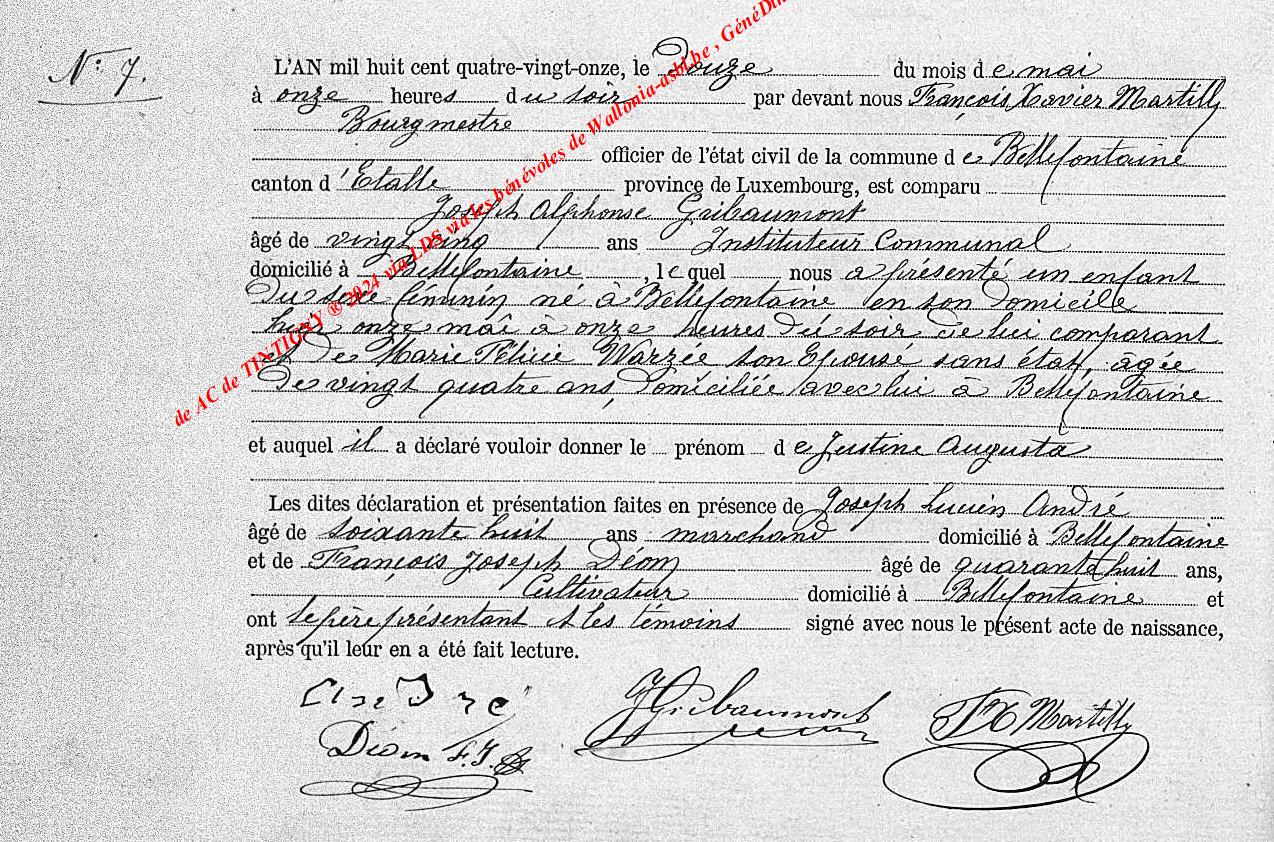 N° 7.
L'AN mil huit cent quatre-vingt-onze, le Douze du mois de mai
à onze heures du soir par devant nous François Xavier Martilly
Bourgmestre
officier de l'état civil de la commune de Bellefontaine
canton d'Etalle province de Luxembourg, est comparu
Joseph Alphonse Gribaumont
âgé de vingt cinq ans Instituteur Communal
domicilié à Bellefontaine, lequel nous a présenté un enfant
du sexe féminin né à Bellefontaine en son domicile
hier onze mai à onze heures du soir, de lui comparant
et de Marie Félicie Warzée son Epouse sans état, âgée
de vingt quatre ans, domiciliée avec lui à Bellefontaine
et auquel il a déclaré vouloir donner le prénom de Justine Augusta
Les dites déclaration et présentation faites en présence de Joseph Lucien André
âgé de soixante huit ans marchand domicilié à Bellefontaine
et de François Joseph Déom âgé de quarante huit ans,
Cultivateur domicilié à Bellefontaine et
ont le père présentant et les témoins signé avec nous le présent acte de naissance,
après qu'il leur en a été fait lecture.
JGribaumont
FX Martilly
Déom F.J.
de AC de TINTIGNY ® 2024 via LDS via les bénévoles de Wallonia-asbl.be , GénéDin